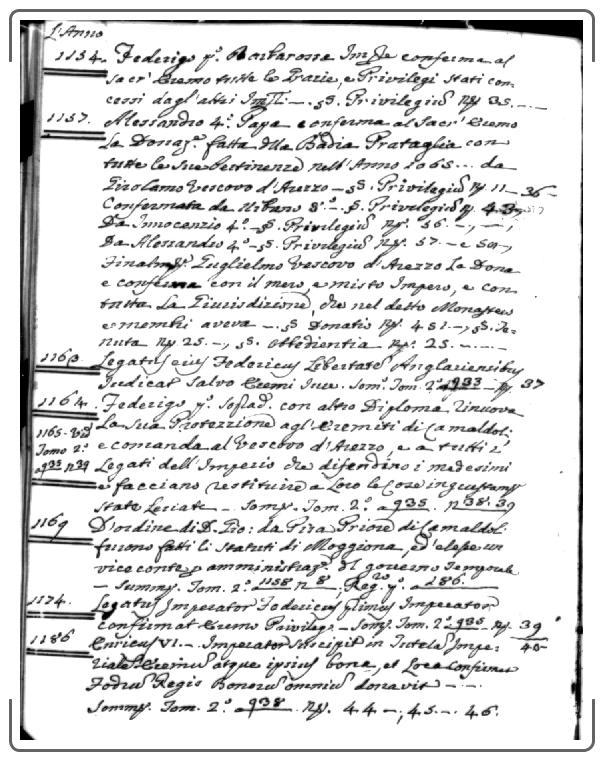 L'Anno
1154. Federigo p.º Barbarossa Imp.re conferma al
Sacr' Eremo tutte le Grazie, e Privilegi stati con-
cessi dagl'altri Imp.ri —. §. Privilegiu N.º 35. — —
1157. Alessandro 4.º Papa conferma al Sacr' Eremo
La Donaz.e fatta della Badia Prataglia con
tutte le sue pertinenze nell'Anno 1065... da
Girolamo Vescovo d'Arezzo — §. Privilegiu N.º 11 — 36 —
Confermata da Urbano 3.º —. §. Privilegiu N.º 43
Da Innocenzio 4.º —§. Privilegiu N.º. 56. —, —,
Da Alessandro 4.º —§. Privilegiu N.º. 57. — e
Finalm.te Guglielmo Vescovo d'Arezzo La Dona
e conferma con il mero, e misto Impero, e con
tutta La Giurisdizione, che nel detto Monastero
e membri aveva —. § Donatio N.º. 451. —, §. Te-
nuta N.º 25. —, §. Obbedientia N.º. 25. — —
1163 Legatus eius Federicus Libertate Anglariensibus
Judicat salvo Eremi Jure. Som. Tom. 2.º 933 — N.º 37
1164. Federigo p.º Soprad. con altro Diploma rinnova
La sua Protezzione agl'Eremiti di Camaldol:
1165 - Tomo 2.º a 935 n 39 e comanda al Vescovo d'Arezzo, e a tutti i
Legati dell'Imperio che difendino i medesimi
e facciano restituire a Loro le Cose ingiustam.te
State Levate —. Som. Tom. 2.º a 935. n 38. 39
1169 D'ordine di D. Gio: da Pisa Priore di Camaldol:
furono fatti li Statuti di Moggiona, ed elesse un
vice conte p amministraz.e del governo Temporale
— Summ. Tom. 2.º 1158 n 8. Reg.ro p.º a 286. —
1174. Legatus Imperator Federicus primus Imperator
confirmat Eremo Privileg. — Som. Tom. 2.º 935 N.º. 39 / 40 —
1186 Enricus VI. — Imperator suscipit in Tutela Impe:
riale Eremu atque ipsius bona, et Loca confirmat
Fodru Regis Bonoru omniu donavit — — —.
Somm. Tom. 2.º a 938 . N.º. 44 —, 45. —. 46.